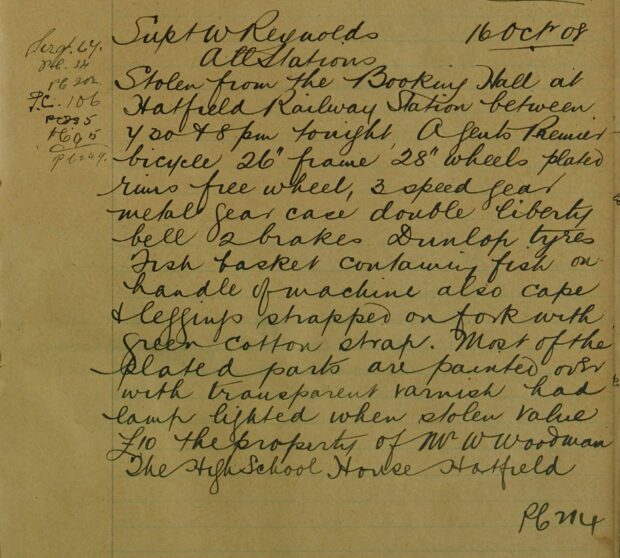 Supt W Reynolds 16 Octr 08
All Stations
Sergt. 64.
P.C. 106
Stolen from the Booking Hall at
Hatfield Railway Station between
7 20 & 8 pm tonight, A gents Premier
bicycle 26" frame 28" wheels plated
rims free wheel, 3 speed gear
metal gear case double liberty
bell 2 brakes Dunlop tyres
Fish basket containing fish on
handle of machine also cape
& leggings strapped on fork with
green cotton strap. Most of the
plated parts are painted over
with transparent varnish had
lamp lighted when stolen value
£10 the property of Mr W Woodman
The High School House Hatfield